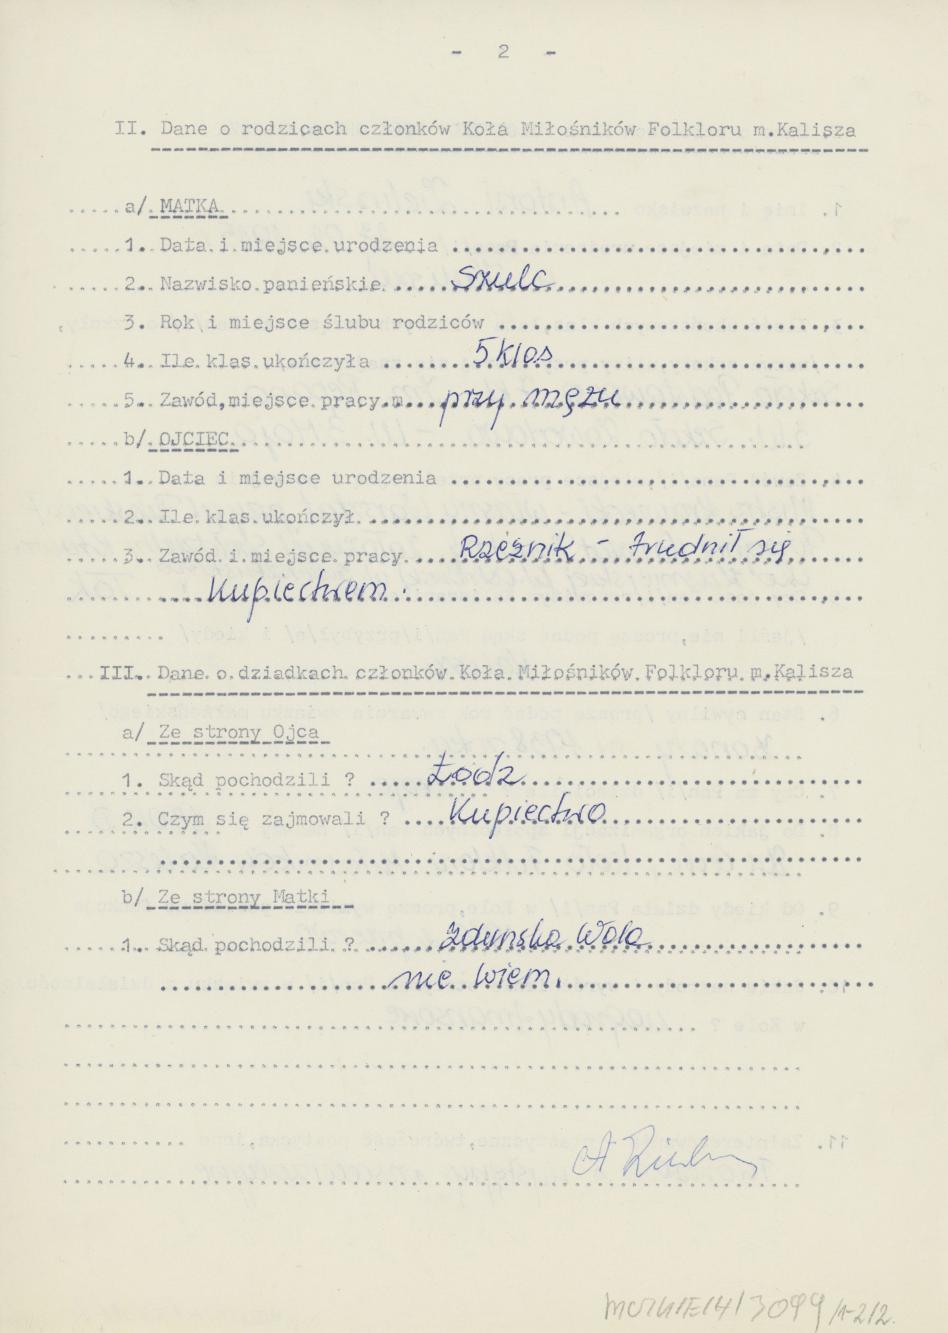 - 2 -
II. Dane o rodzicach członków Koła Miłośników Folkloru m.Kalisza
a/ MATKA
1. Data i miejsce urodzenia
2. Nazwisko panieńskie Szulc
3. Rok i miejsce ślubu rodziców
4. Ile klas ukończyła 5 klas
5. Zawód,miejsce pracy m. przy mężu
b/ OJCIEC
1. Data i miejsce urodzenia
2. Ile klas ukończył
3. Zawód i miejsce pracy Rzeźnik - trudnił się
Kupiectwem.
III. Dane o dziadkach członków Koła Miłośników Folkloru m.Kalisza
a/ Ze strony Ojca
1. Skąd pochodzili ? Łódz
2. Czym się zajmowali ? Kupiectwo
b/ Ze strony Matki
1. Skąd pochodzili ? Zduńska Wola
nie wiem.
3099/1-2/2.